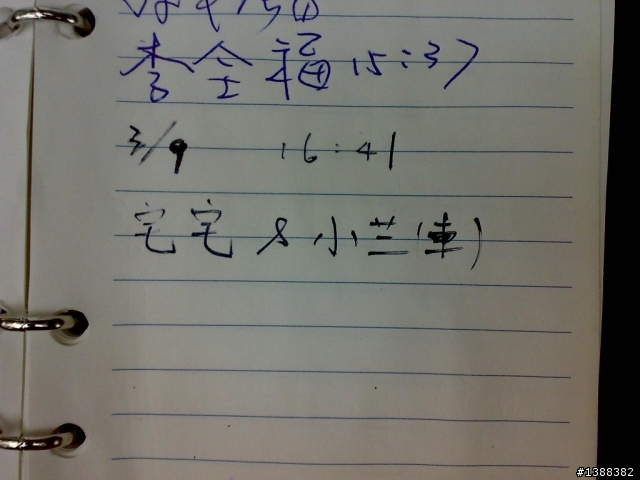 李全福 15:37
3/9 16:41
宅宅&小兰(車)
#1388382